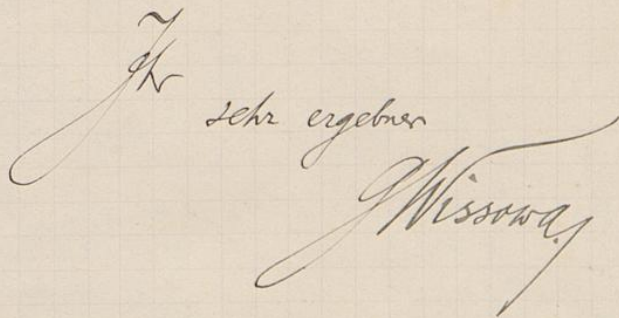 Ihr
sehr ergebner
GWissowa.